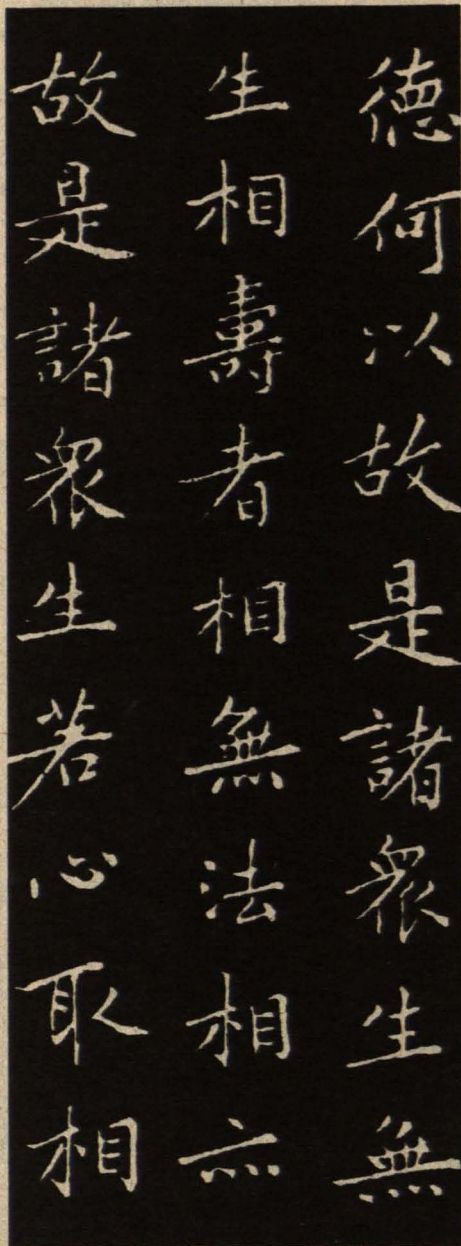 德何以故是諸眾生無
生相壽者相無法相亦
故是諸眾生若心取相